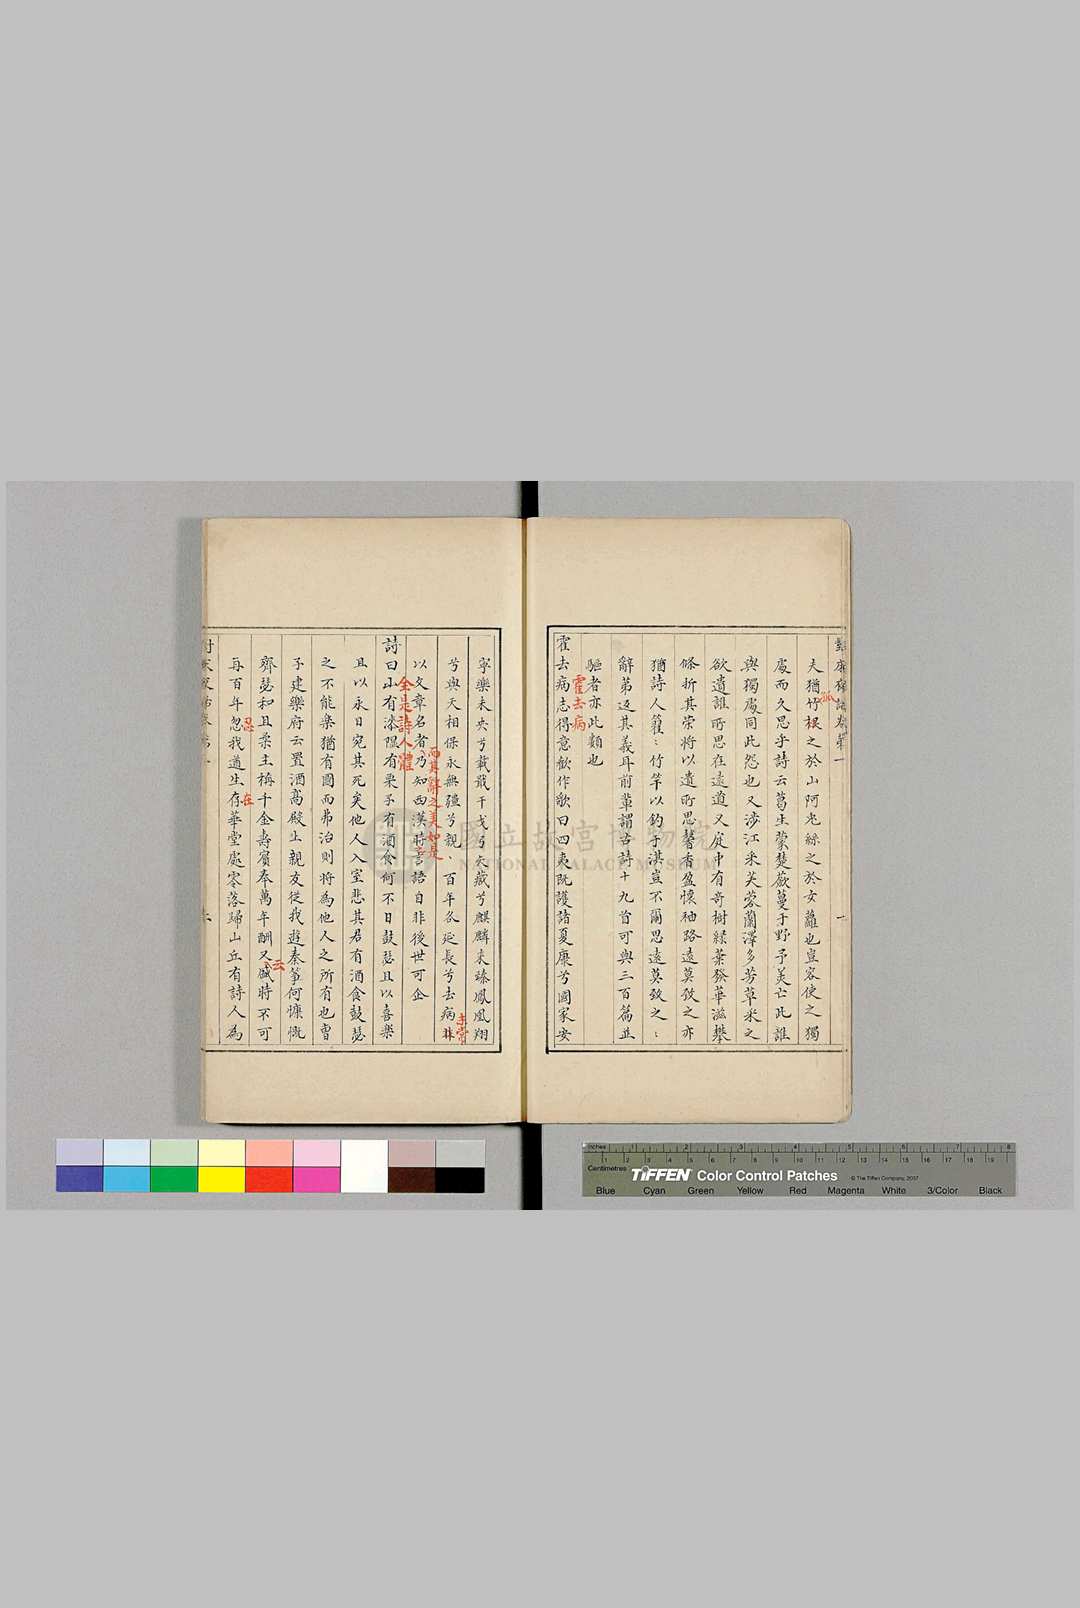 夫猶竹根之於山阿兔絲之於女蘿也豈容使之獨
處而久思乎詩云葛生蒙楚蘞蔓于野予美亡此誰
與獨處同此怨也又涉江采芙蓉蘭澤多芳草采之
欲遺誰所思在遠道又庭中有奇樹綠葉發華滋攀
條折其榮將以遺所思馨香盈懷袖路遠莫致之亦
猶詩人籊〻竹竿以釣于淇豈不爾思遠莫致之〻
辭第返其義耳前輩謂古詩十九首可與三百篇並
驅者亦此類也
霍去病
霍去病志得意歡作歌曰四夷既護諸夏康兮國家安
寧樂未央兮載戢干戈弓矢藏兮麒麟來臻鳳凰翔
兮與天相保永無疆兮親〻百年各延長兮去病非
未嘗
以文章名者乃知西漢時言語自非後世可企
而其辭之美如是
全是詩人體
詩曰山有漆隰有栗子有酒食何不日鼓瑟且以喜樂
且以永日宛其死矣他人入室悲其君有酒食鼓瑟
之不能樂猶有國而弗治則將為他人之所有也曹
子建樂府云置酒高殿上親友從我遊秦箏何慷慨
齊瑟和且柔主稱千金壽賓奉萬年酬又盛時不可
云
再百年忽我遒生存華堂處零落歸山丘有詩人為
忽
在
國立故宮博物院
NATIONAL PALACE MUSEUM
Inches
1 2 3 4 5 6 7 8
Centimetres
1 2 3 4 5 6 7 8 9 10 11 12 13 14 15 16 17 18 19
TIFFEN Color Control Patches
© The Tiffen Company, 2007
Blue Cyan Green Yellow Red Magenta White 3/Color Black